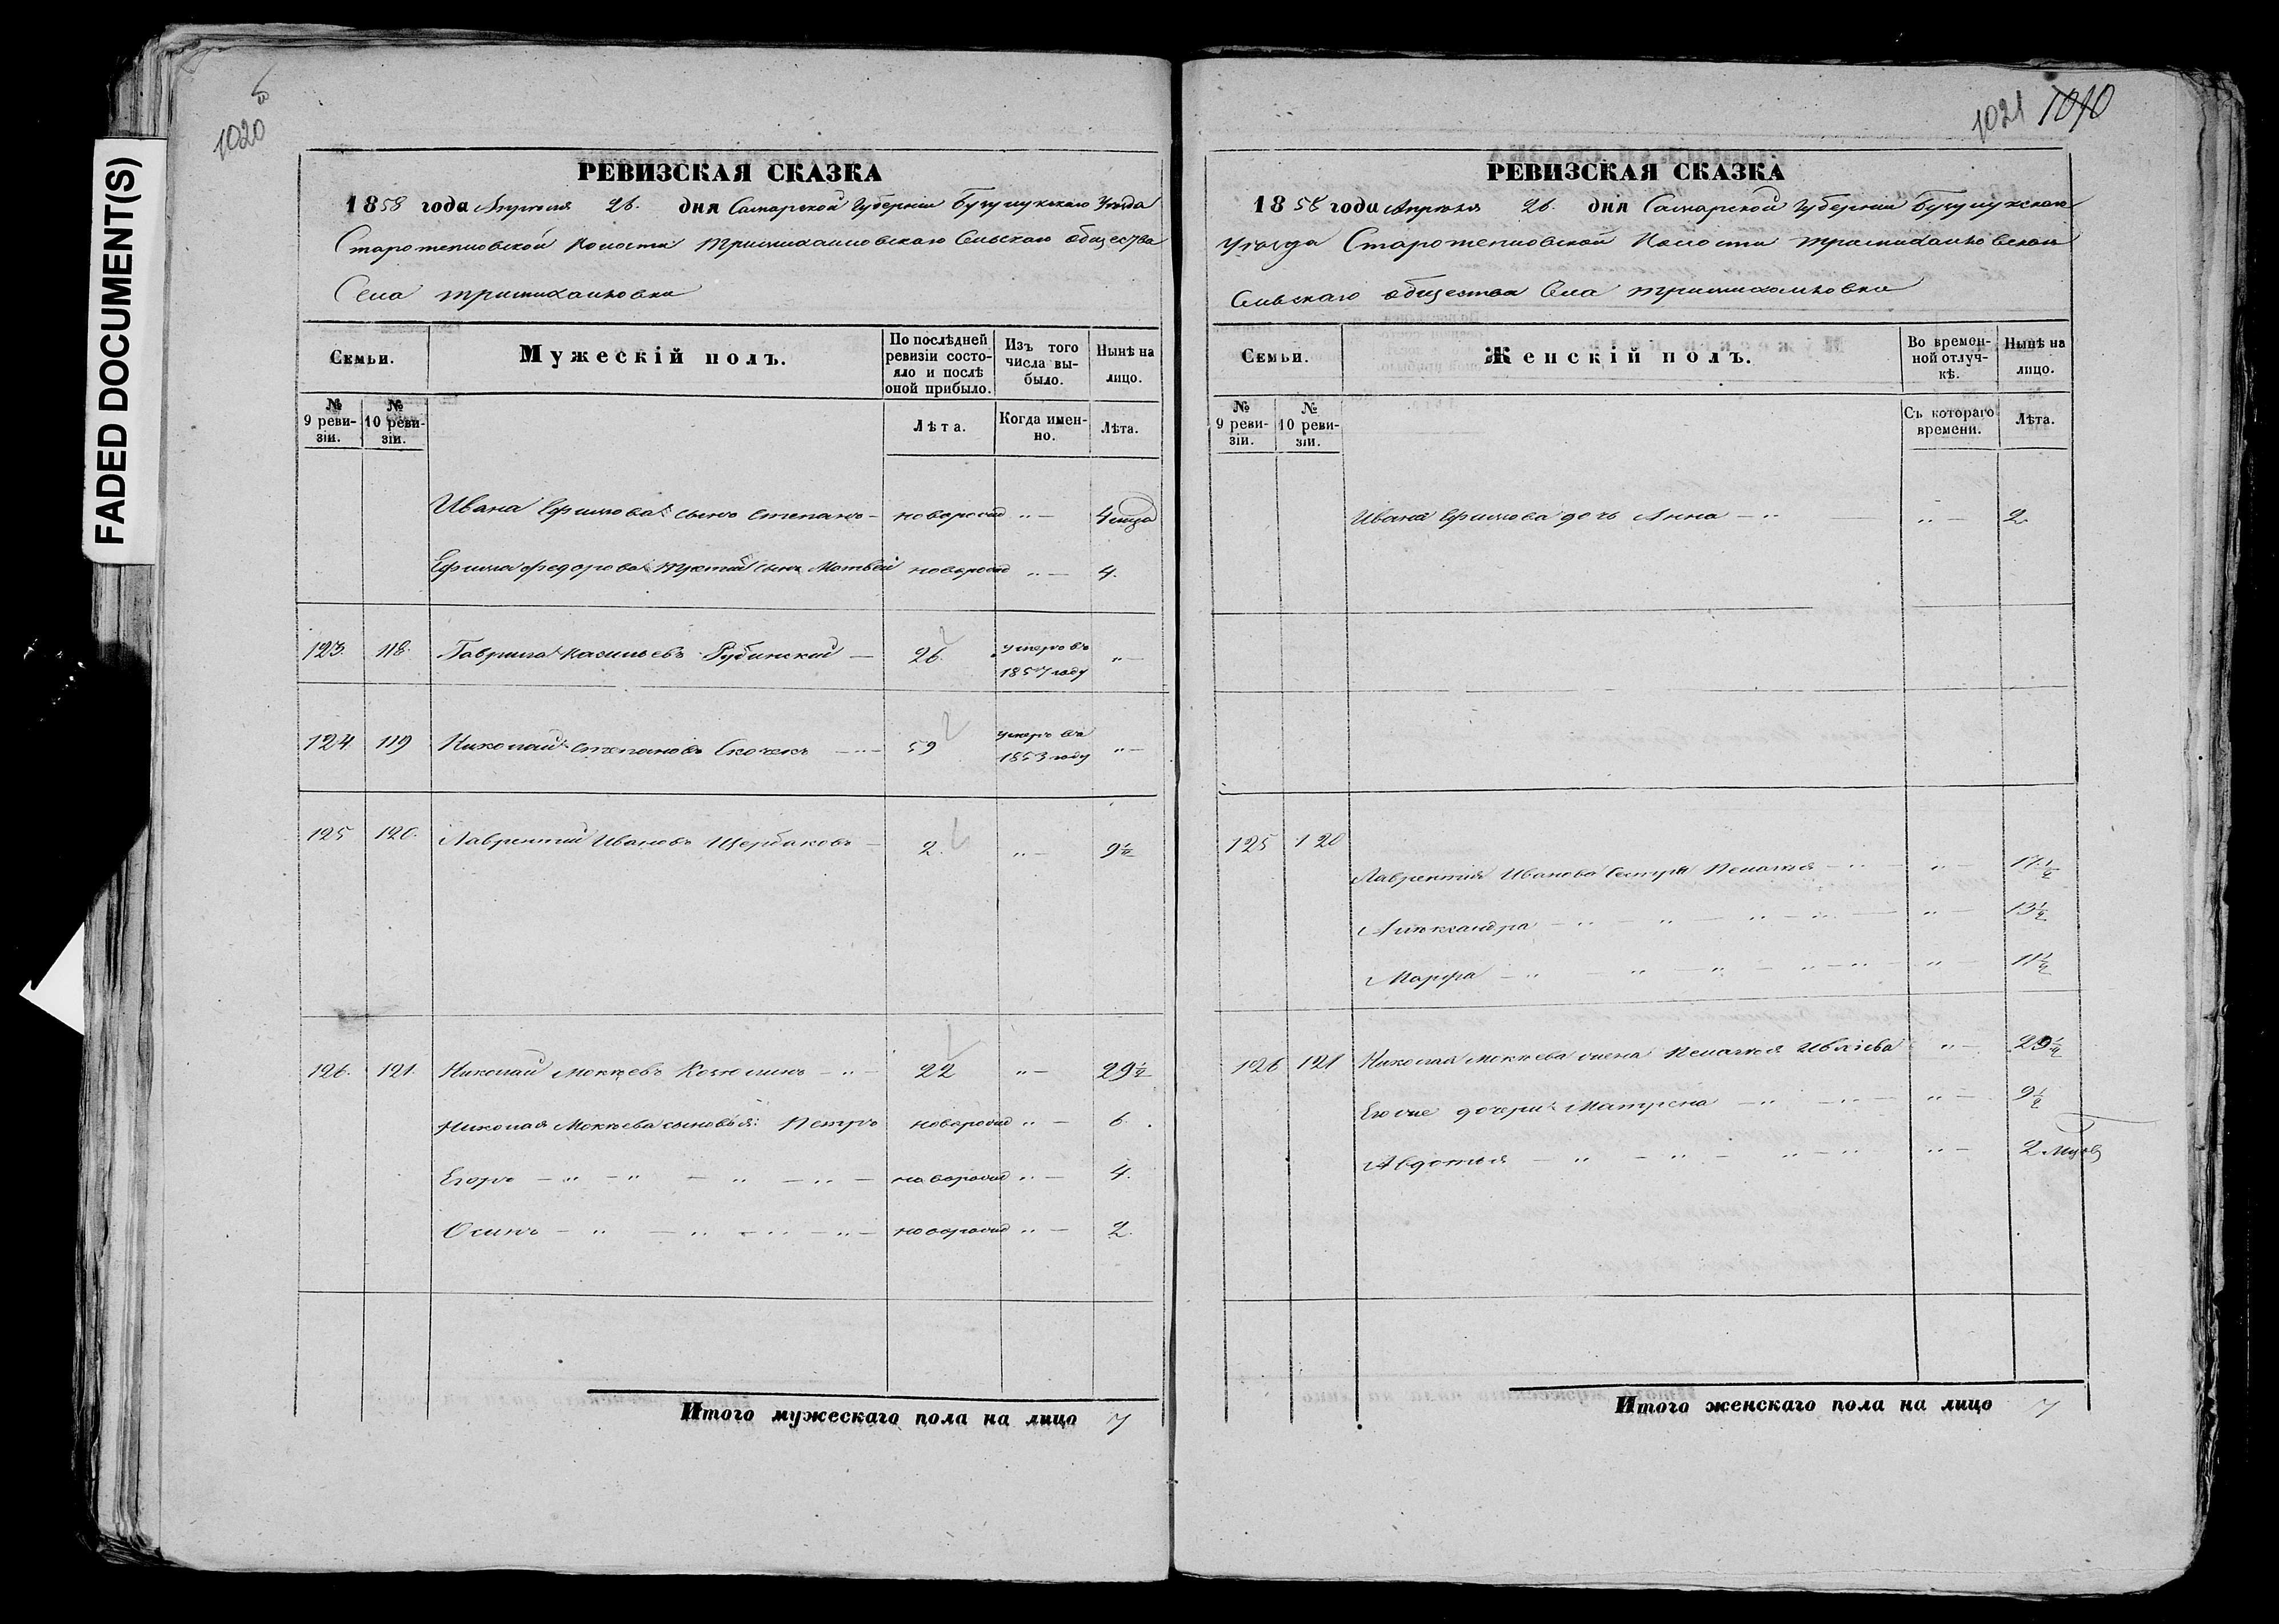 FADED DOCUMENT(S)
1020
РЕВИЗСКАЯ СКАЗКА
1858 года Апреля 26. дня Самарской Губернии Бугурукскаго Уезда
Старотепловской Волости Тримихайловскаго Сельскаго общества
Села Тримихайловки
Семьи.
Мужескій полъ.
По послѣдней ревизіи состояло и послѣ оной прибыло.
Изъ того числа выбыло.
Нынѣ на лицо.
№ 9 ревизіи.
№ 10 ревизіи.
Лѣта.
Когда именно.
Лѣта.
Ивана Ефимова сынъ Степанъ – новорожд „ –
Ефима Федорова сынъ Матвей новорожд „ – 4.
123. 118. Гаврила Васильевъ – 26. умеръ въ 1857 году „ –
124. 119 Николай Степановъ – „ – 59 умеръ въ 1853 году „ –
125 120. Лаврентий Ивановъ Щербаковъ – 2. „ – 9½
126. 121. Николай Мокеевъ – „ – 22 „ – 29½
Николая Мокеева сыновья: Петръ новорожд „ – 6.
Егоръ – „ – „ – „ – „ – новорожд „ – 4.
Осипъ – „ – „ – „ – „ – новорожд „ – 2.
Итого мужескаго пола на лицо 7
1021 1010
РЕВИЗСКАЯ СКАЗКА
1858 года Апреля 26. дня Самарской Губернии
Уезда Старотепловской Волости
Сельскаго общества Села Тримихайловки
Семьи.
Женскій полъ.
Во временной отлучкѣ.
Нынѣ на лицо.
№ 9 ревизіи.
№ 10 ревизіи.
Съ котораго времени.
Лѣта.
Ивана Ефимова дочь Анна – „ „ – 2.
125 120
Лаврентия Иванова Сестры Пелагея – „ – „ – 17½
Александра – „ – „ – „ – „ – „ – 13½
Марфа – „ – „ – „ – „ – „ – „ – 11½
126 121 Николая Мокеева жена Пелагея „ – 29½
Его же дочери: Матрена – „ – „ – „ – 9½
Авдотья – „ – „ – „ – „ „ – 2
Итого женскаго пола на лицо 7